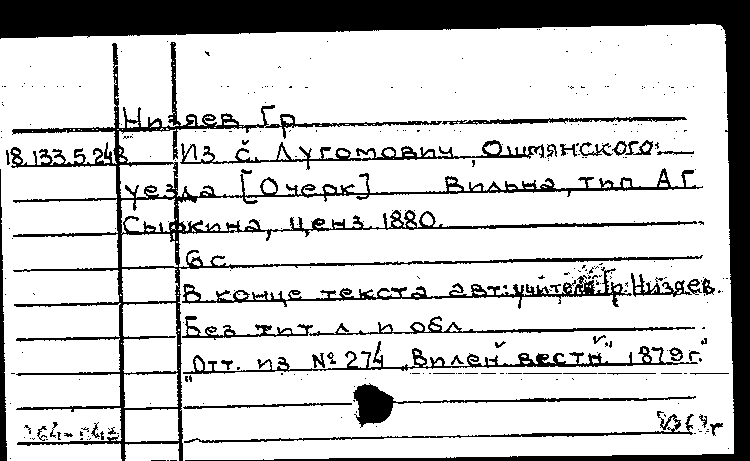 Низяев, Гр
18.133.5.248 Из с. Лугомович, Ошмянского
уезда. [Очерк] Вильна, тип. А.Г.
Сыркина, ценз. 1880.
6 с.
В конце текста авт: учитель Гр. Низяев.
Без тит. л. и обл.
"Отт. из № 274 „Вилен. вестн." 1879г."